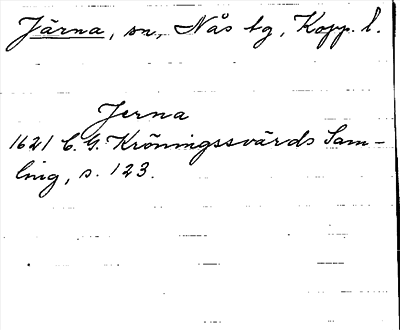 Järna, sn, Nås tg, Kopp. l.
Jerna
1621 C. G. Kröningssvärds Sam-
ling, s. 123.